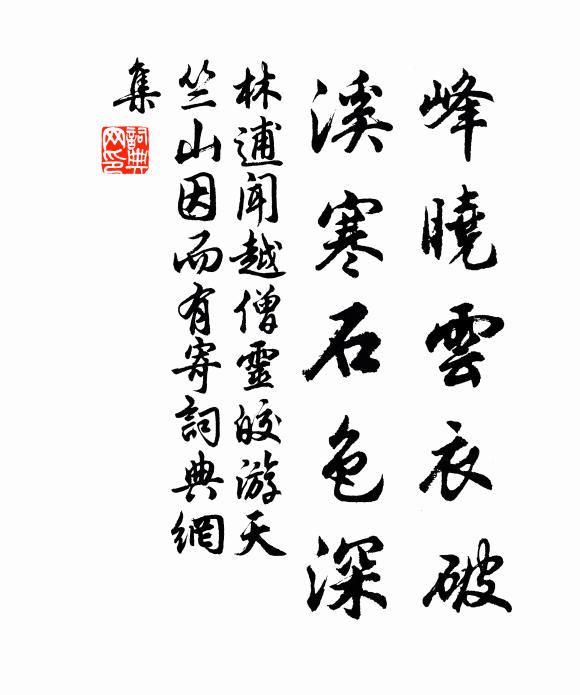 峰曉雲衣破
溪寒石色深
林逋聞越僧靈皎游天
竺山因而有寄詞典網
集
詞典
网印